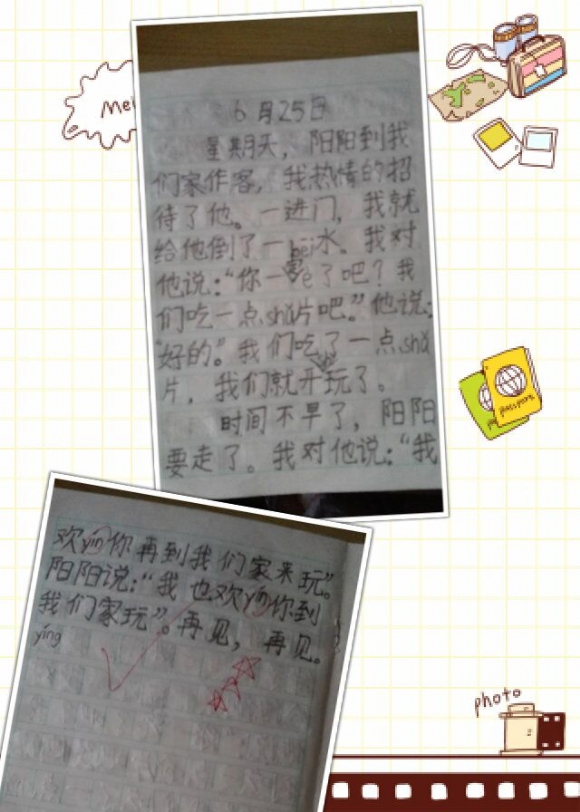 6月25日
星期天，阳阳到我
们家作客，我热情的招
待了他。一进门，我就
给他倒了一bēi水。我对
他说：“你一è了吧？我
们吃一点shǔ片吧。”他说：
“好的。”我们吃了一点shǔ
片，我们就开玩了。
时间不早了，阳阳
要走了。我对他说：“我
欢yín你再到我们家来玩”。
阳阳说：“我也欢yín你到
我们家玩”。再见，再见。
yíng
passport
photo